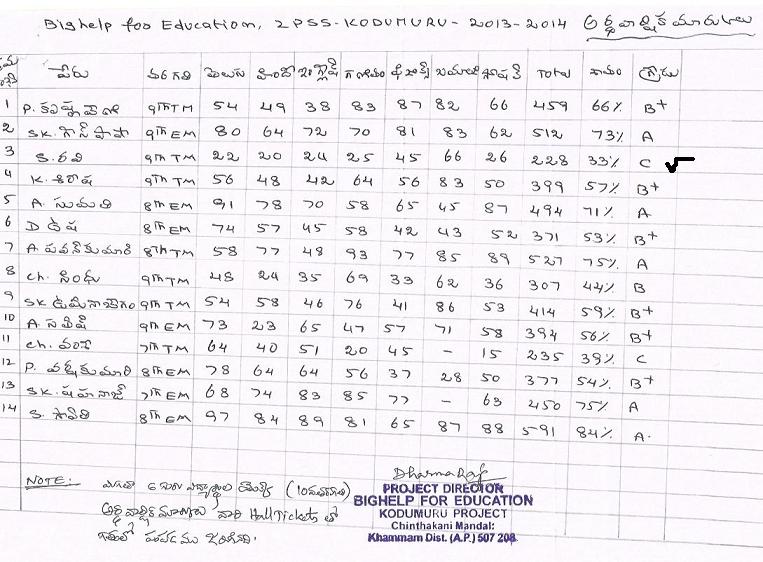 Bighelp for Education, ZPSS-KODUMURU- 2013-2014 అర్థ వార్షిక మార్కులు
పేరు తరగతి తెలుగు హిందీ ఇంగ్లీష్ గణితం TOTAL శాతం గ్రేడు
1 P. 9th TM 54 49 38 83 87 82 66 459 66% B+
2 SK. 9th EM 80 64 72 70 81 83 62 512 73% A
3 S. రవి 9th TM 22 20 24 25 45 66 26 228 33% C √
4 K. శిరీష 9th TM 56 48 42 64 56 83 50 399 57% B+
5 A. సుమతి 8th EM 91 78 70 58 65 45 87 494 71% A
6 D 8th EM 74 57 45 58 42 43 52 371 53% B+
7 A. పవన్ కుమార్ 8th TM 58 77 48 93 77 85 89 527 75% A
8 Ch. సింధు 9th TM 48 24 35 69 33 62 36 307 44% B
9 SK. 9th TM 54 58 46 76 41 86 53 414 59% B+
10 A. 9th EM 73 23 65 47 57 71 58 394 56% B+
11 Ch. వంశీ 7th TM 64 40 51 20 45 - 15 235 39% C
12 P. 8th EM 78 64 64 56 37 28 50 377 54% B+
13 SK. షహనాజ్ 7th EM 68 74 83 85 77 - 63 450 75% A
14 S. 8th EM 97 84 89 81 65 87 88 591 84% A.
NOTE: మిగతా 6 గురు విద్యార్థుల యొక్క (10వతరగతి)
అర్థ వార్షిక మార్కులు వారి Hall Tickets తో
జరిగినది.
DharmaRaj
PROJECT DIRECTOR
BIGHELP FOR EDUCATION
KODUMURU PROJECT
Chinthakani Mandal:
Khammam Dist. (A.P.) 507 208.